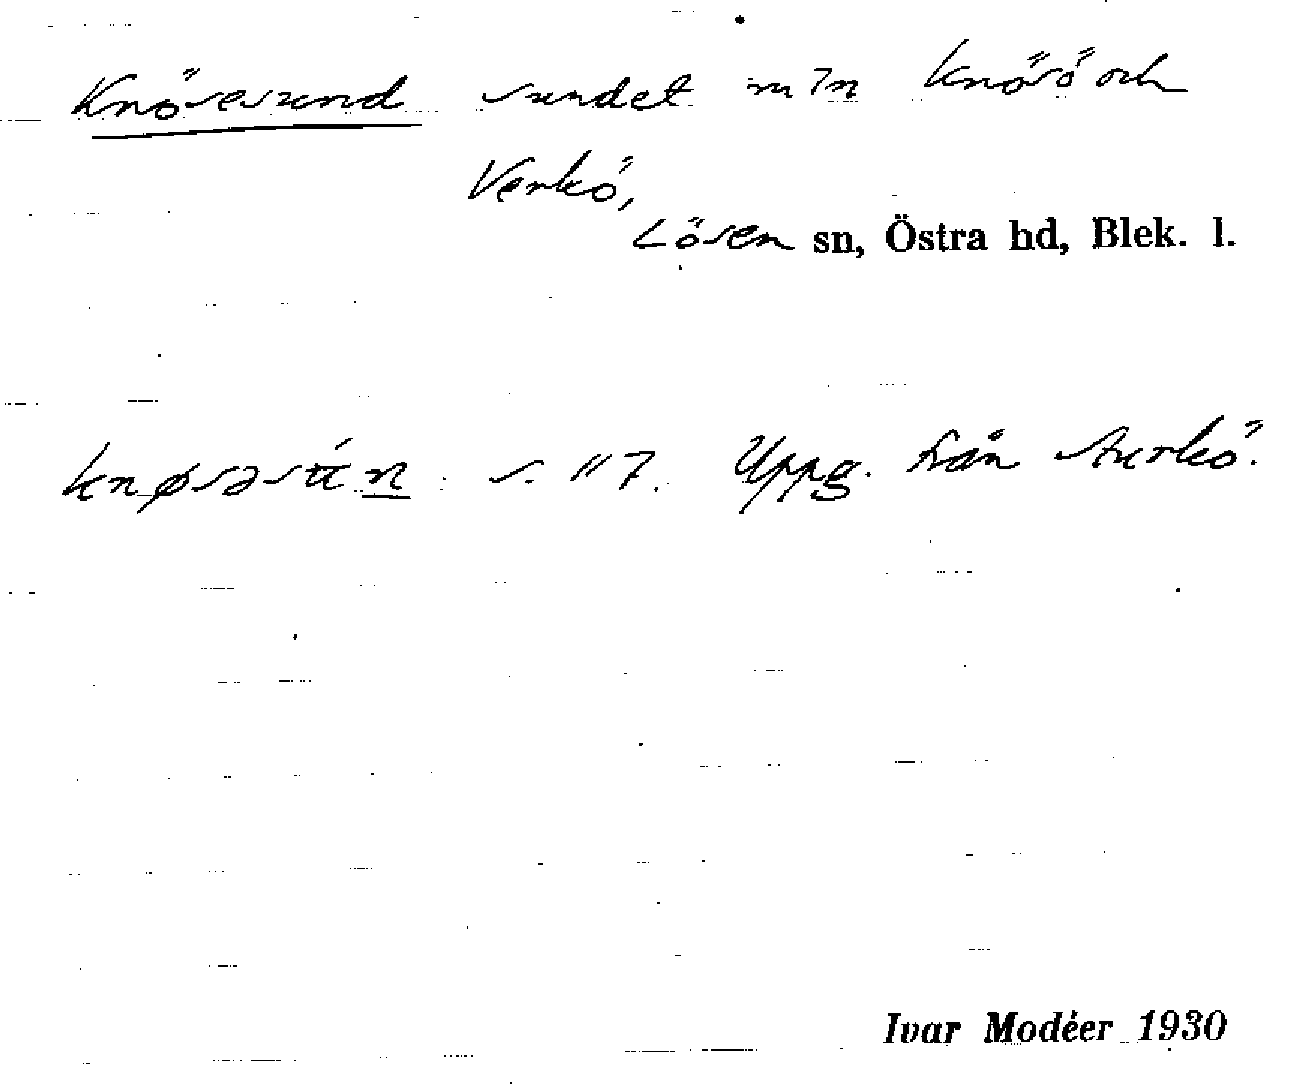 Knösesund sundet m^n Knösö och
Verkö,
Lösen sn, Östra hd, Blek. l.
knøsəsún s. 117. Uppg. från Sturkö.
Ivar Modéer 1930